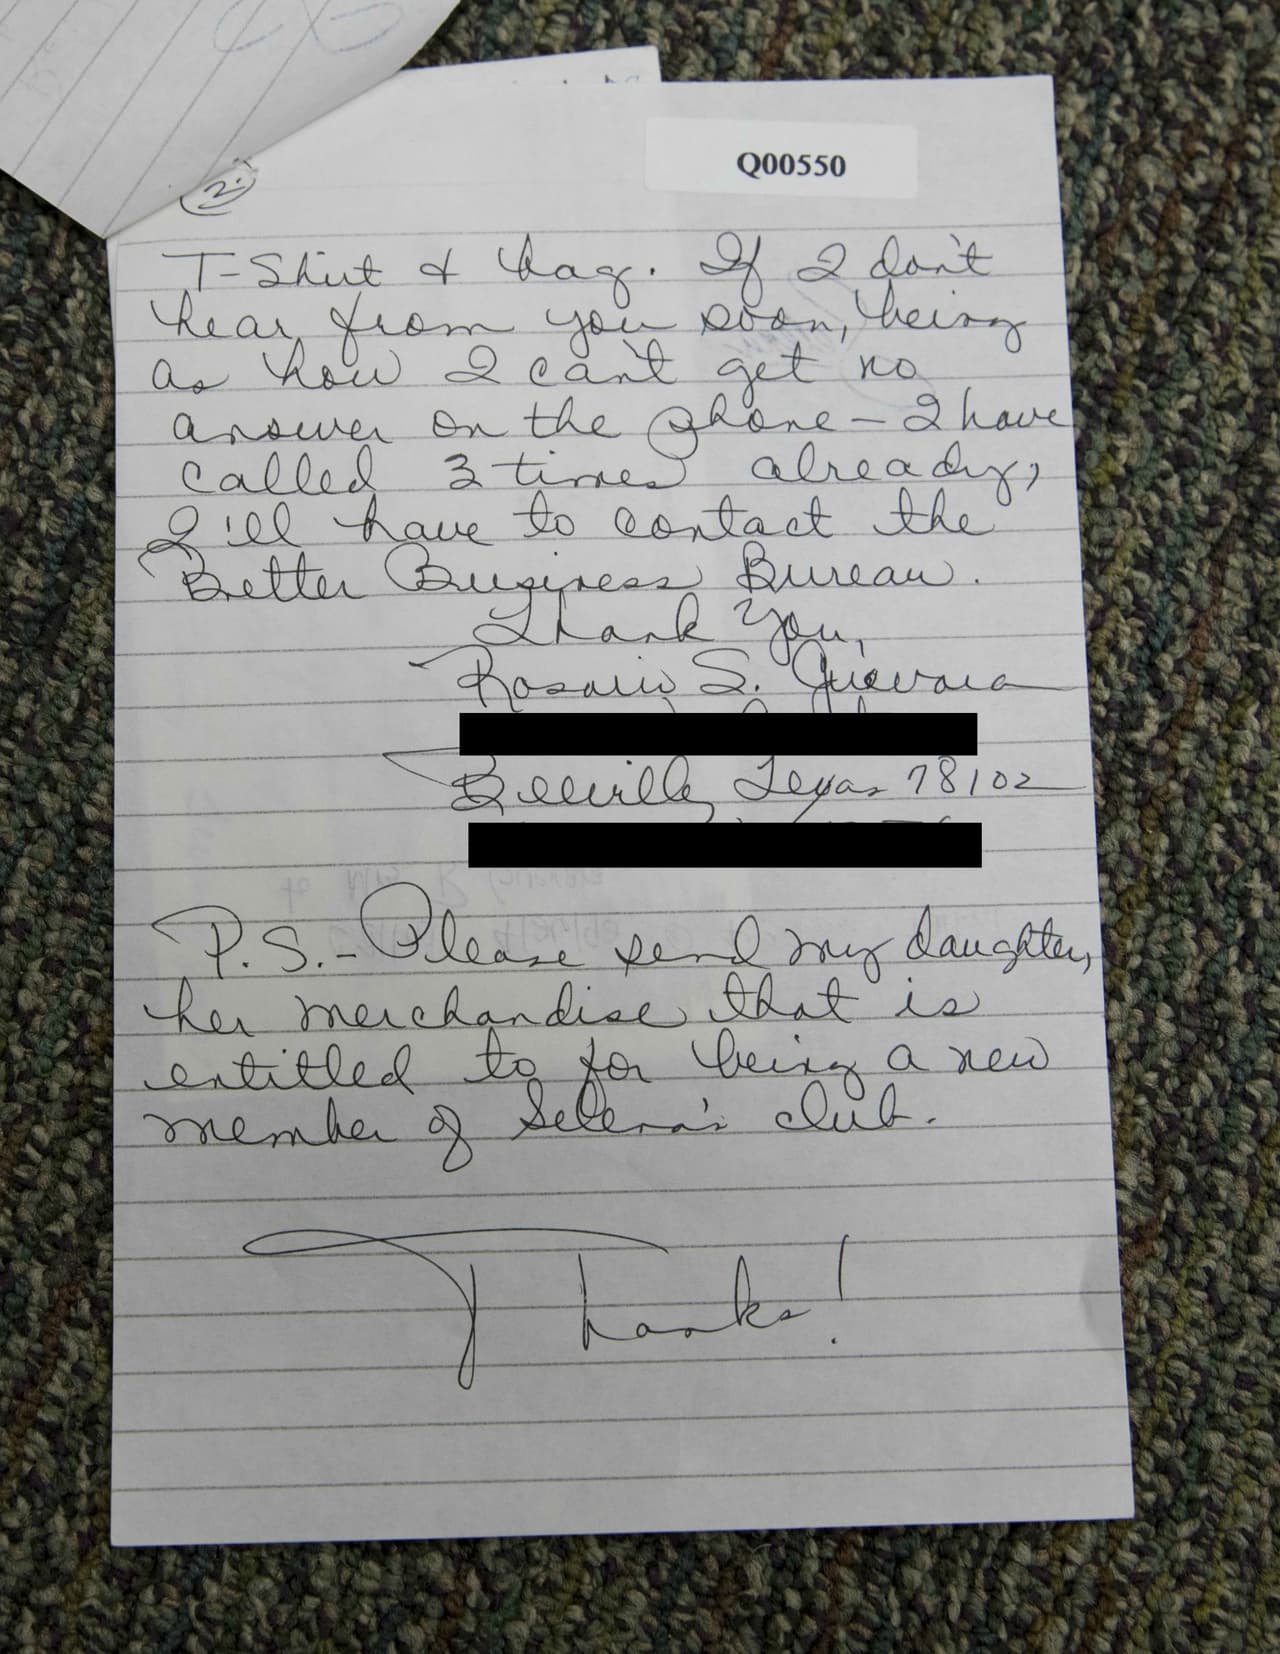 Q00550
2.
T-Shirt & bag. If I don't
hear from you soon, being
as how I can't get no
answer on the phone – I have
called 3 times already,
I'll have to contact the
Better Business Bureau.
Thank You,
Rosario S. Guevara
Beeville, Texas 78102
P.S. – Please send my daughter,
her merchandise that is
entitled to for being a new
member of Selena's club.
Thanks!